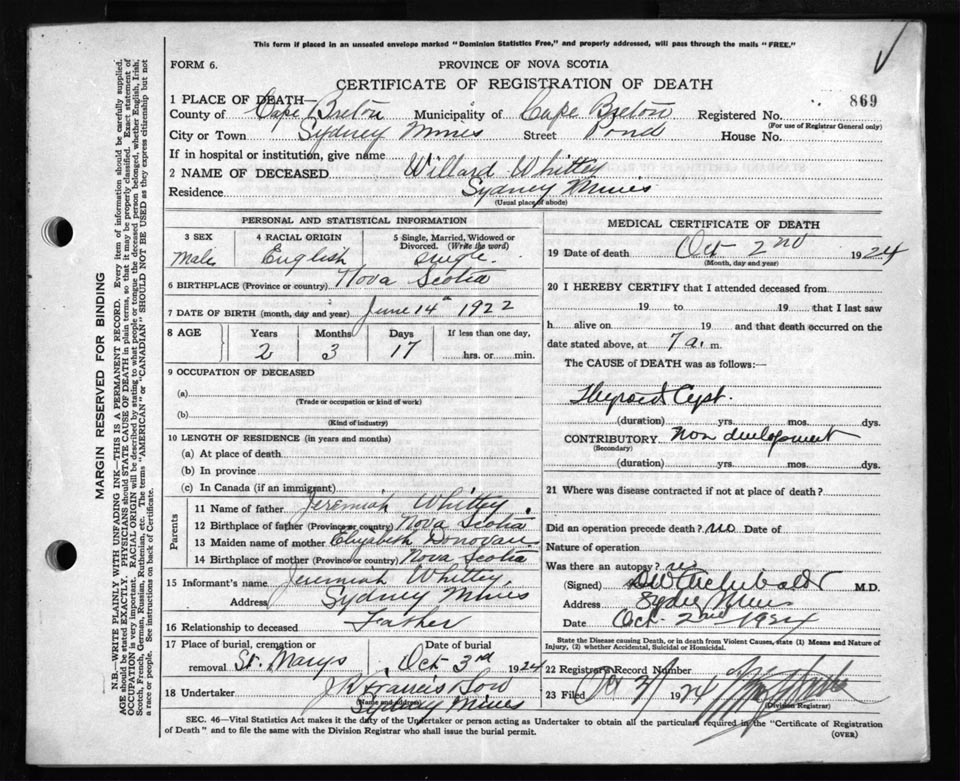 This form if placed in an unsealed envelope marked "Dominion Statistics Free," and properly addressed, will pass through the mails "FREE."
FORM 6.
PROVINCE OF NOVA SCOTIA
CERTIFICATE OF REGISTRATION OF DEATH
869
1 PLACE OF DEATH—
County of Cape Breton Municipality of Cape Breton Registered No.
(For use of Registrar General only)
City or Town Sydney Mines Street Pond House No.
If in hospital or institution, give name
2 NAME OF DECEASED Willard Whitley
Residence Sydney Mines
(Usual place of abode)
PERSONAL AND STATISTICAL INFORMATION
3 SEX 4 RACIAL ORIGIN 5 Single, Married, Widowed or Divorced. (Write the word)
Male English single.
6 BIRTHPLACE (Province or country) Nova Scotia
7 DATE OF BIRTH (month, day and year) June 14th 1922
8 AGE Years Months Days If less than one day,
2 3 17 hrs. or min.
9 OCCUPATION OF DECEASED
(a)
(Trade or occupation or kind of work)
(b)
(Kind of industry)
10 LENGTH OF RESIDENCE (in years and months)
(a) At place of death
(b) In province
(c) In Canada (if an immigrant)
Parents
11 Name of father Jeremiah Whitley.
12 Birthplace of father (Province or country) Nova Scotia
13 Maiden name of mother Elizabeth Donovan
14 Birthplace of mother (Province or country) Nova Scotia
15 Informant's name Jeremiah Whitley,
Address Sydney Mines
16 Relationship to deceased Father
17 Place of burial, cremation or removal St. Marys
Date of burial Oct 3rd 1924
18 Undertaker J R Francis Son
(Name and address)
Sydney Mines
MEDICAL CERTIFICATE OF DEATH
19 Date of death Oct 2nd 1924
(Month, day and year)
20 I HEREBY CERTIFY that I attended deceased from
19 to 19 that I last saw
h alive on 19 and that death occurred on the
date stated above, at 7 a. m.
The CAUSE of DEATH was as follows:—
Thyroid Cyst.
(duration) yrs. mos. dys.
CONTRIBUTORY Non development
(Secondary)
(duration) yrs. mos. dys.
21 Where was disease contracted if not at place of death?
Did an operation precede death? no Date of
Nature of operation
Was there an autopsy? no
(Signed) Archibald M.D.
Address Sydney Mines
Date Oct. 2nd 1924
State the Disease causing Death, or in death from Violent Causes, state (1) Means and Nature of Injury, (2) whether Accidental, Suicidal or Homicidal.
22 Registrars Record Number
23 Filed Oct 3/ 1924
(Division Registrar)
SEC. 46—Vital Statistics Act makes it the duty of the Undertaker or person acting as Undertaker to obtain all the particulars required in the "Certificate of Registration
of Death" and to file the same with the Division Registrar who shall issue the burial permit.
(OVER)
MARGIN RESERVED FOR BINDING
N.B.—WRITE PLAINLY WITH UNFADING INK—THIS IS A PERMANENT RECORD. Every item of information should be carefully supplied.
AGE should be stated EXACTLY. PHYSICIANS should STATE CAUSE OF DEATH in plain terms, so that it may be properly classified. Exact statement of
OCCUPATION is very important. RACIAL ORIGIN will be described by stating to what people or tongue the deceased person belonged, whether English, Irish,
Scotch, French, German, Russian, Ruthenian, etc. The terms "AMERICAN" or "CANADIAN" SHOULD NOT BE USED as they express citizenship but not
a race or people. See instructions on back of Certificate.